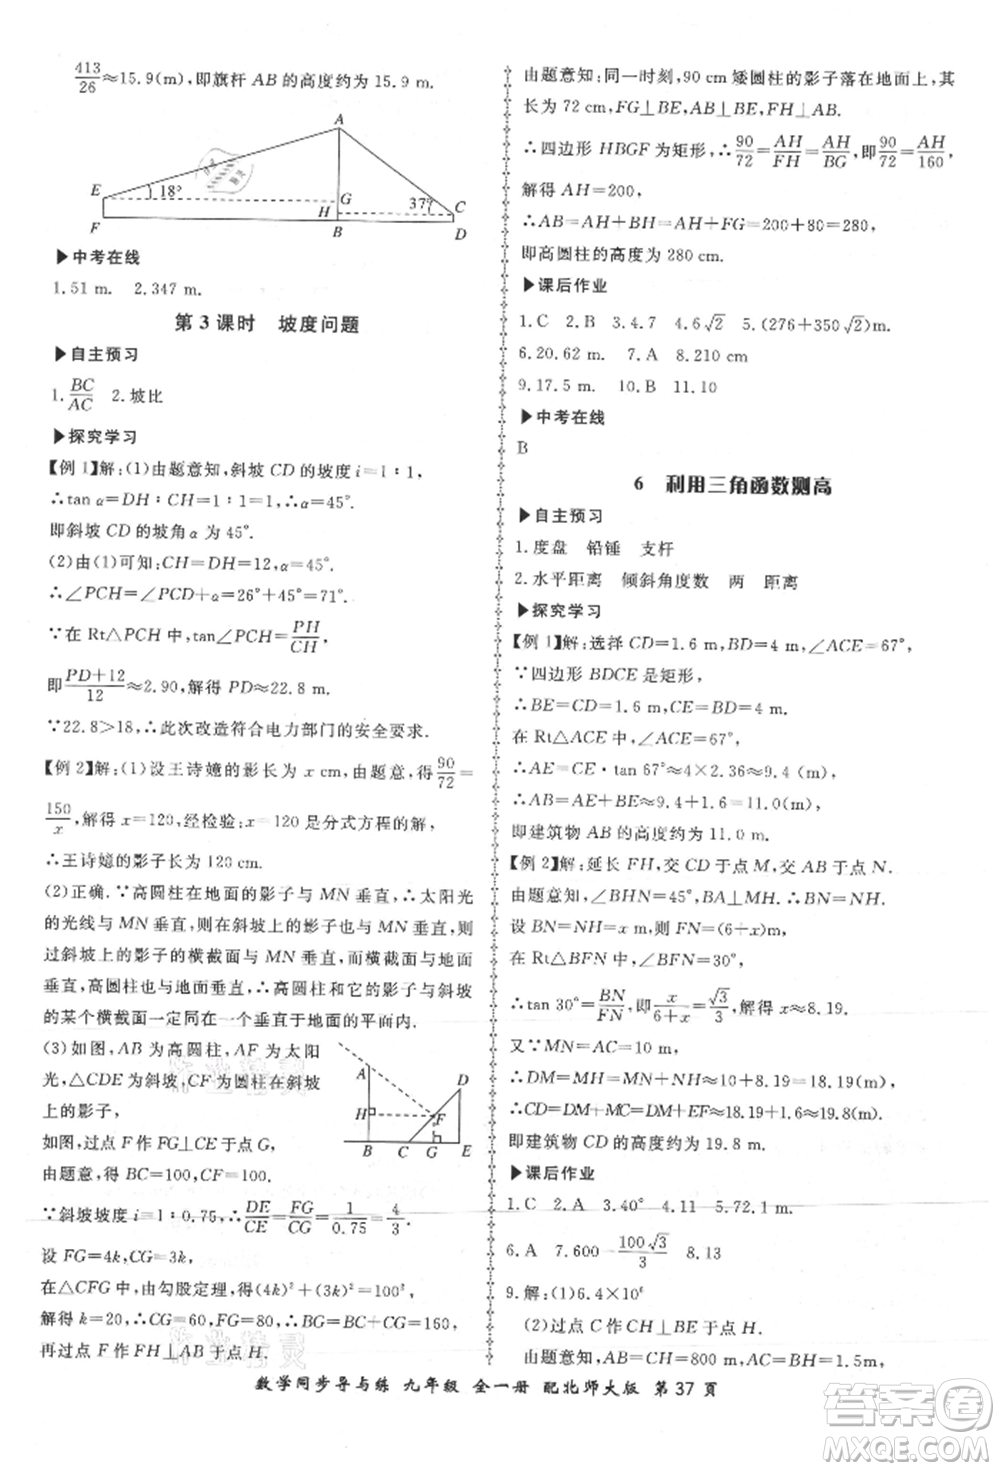 413/26≈15.9(m),即旗杆 AB 的高度约为 15.9 m.
A
E
18°
G
37°
C
F
H
B
D
▶中考在线
1.51 m. 2.347 m.
第 3 课时 坡度问题
▶自主预习
1.BC/AC 2.坡比
▶探究学习
【例 1】解:(1)由题意知,斜坡 CD 的坡度 i=1∶1,
∴tan α=DH∶CH=1∶1=1,α=45°.
即斜坡 CD 的坡角 α 为 45°.
(2)由(1)可知:CH=DH=12,α=45°.
∴∠PCH=∠PCD+α=26°+45°=71°,
∵在 Rt△PCH 中,tan∠PCH=PH/CH,
即(PD+12)/12≈2.90,解得 PD≈22.8 m.
∵22.8>18,∴此次改造符合电力部门的安全要求.
【例 2】解:(1)设王诗嬑的影长为 x cm,由题意,得90/72=
150/x,解得 x=120,经检验:x=120 是分式方程的解,
∴王诗嬑的影子长为 120 cm.
(2)正确.∵高圆柱在地面的影子与 MN 垂直,∴太阳光
的光线与 MN 垂直,则在斜坡上的影子也与 MN 垂直,则
过斜坡上的影子的横截面与 MN 垂直,而横截面与地面
垂直,高圆柱也与地面垂直,∴高圆柱和它的影子与斜坡
的某个横截面一定同在一个垂直于地面的平面内.
(3)如图,AB 为高圆柱,AF 为太阳
光,△CDE 为斜坡,CF 为圆柱在坡
上的影子,
如图,过点 F 作 FG⊥CE 于点 G,
由题意,得 BC=100,CF=100,
A
D
H
F
B C G E
∵斜坡坡度 i=1∶0.75,∴DE/CE=FG/CG=1/0.75=4/3,
设 FG=4k,CG=3k,
在△CFG 中,由勾股定理,得(4k)²+(3k)²=100²,
解得 k=20,∴CG=60,FG=80,∴BG=BC+CG=160,
再过点 F 作 FH⊥AB 于点 H,
由题意知:同一时刻,90 cm 矮圆柱的影子落在地面上,其
长为 72 cm,FG⊥BE,AB⊥BE,FH⊥AB.
∴四边形 HBGF 为矩形,∴90/72=AH/FH=AH/BG,即90/72=AH/160,
解得 AH=200,
∴AB=AH+BH=AH+FG=200+80=280,
即高圆柱的高度为 280 cm.
▶课后作业
1.C 2.B 3.4.7 4.6√2 5.(276+350√2)m.
6.20.62 m. 7.A 8.210 cm
9.17.5 m. 10.B 11.10
▶中考在线
B
6 利用三角函数测高
▶自主预习
1.度盘 铅锤 支杆
2.水平距离 倾斜角度数 两 距离
▶探究学习
【例 1】解:选择 CD=1.6 m,BD=4 m,∠ACE=67°,
∵四边形 BDCE 是矩形,
∴BE=CD=1.6 m,CE=BD=4 m,
在 Rt△ACE 中,∠ACE=67°,
∴AE=CE·tan 67°≈4×2.36≈9.4 (m),
∴AB=AE+BE≈9.4+1.6=11.0(m),
即建筑物 AB 的高度约为 11.0 m.
【例 2】解:延长 FH,交 CD 于点 M,交 AB 于点 N.
由题意知,∠BHN=45°,BA⊥MH,则 BN=NH,
设 BN=NH=x m,则 FN=(6+x)m,
在 Rt△BFN 中,∠BFN=30°,
∴tan 30°=BN/FN,即x/(6+x)=√3/3,解得 x≈8.19.
又∵MN=AC=10 m,
∴DM=MH=MN+NH≈10+8.19=18.19(m),
∴CD=DM+MC=DM+EF≈18.19+1.6≈19.8(m),
即建筑物 CD 的高度约为 19.8 m.
▶课后作业
1.C 2.A 3.40° 4.11 5.72.1 m.
6.A 7.600−100√3/3 8.13
9.解:(1)6.4×10⁶
(2)过点 C 作 CH⊥BE 于点 M.
由题意知,AB=CM=800 m,BM=AC=300 m,
数学同步导与练 九年级 全一册 配北师大版 第 37 页
答案圈
MXQE.COM